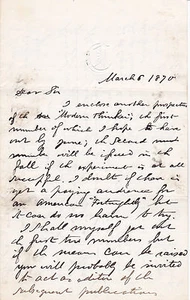 March 8 1870
Dear Sir
I enclose another prospectus
of the new "Modern Thinker", the first
number of which I hope to have
out by June; the second
number will be issued in the
fall if the experiment is at all
successful. I doubt if there is
yet a paying audience for
an American "Fortnightly" but
it can do no harm to try.
I shall myself get out
the first two numbers but
if the means can be raised
you will probably be invited
to act as editor of the
subsequent publications